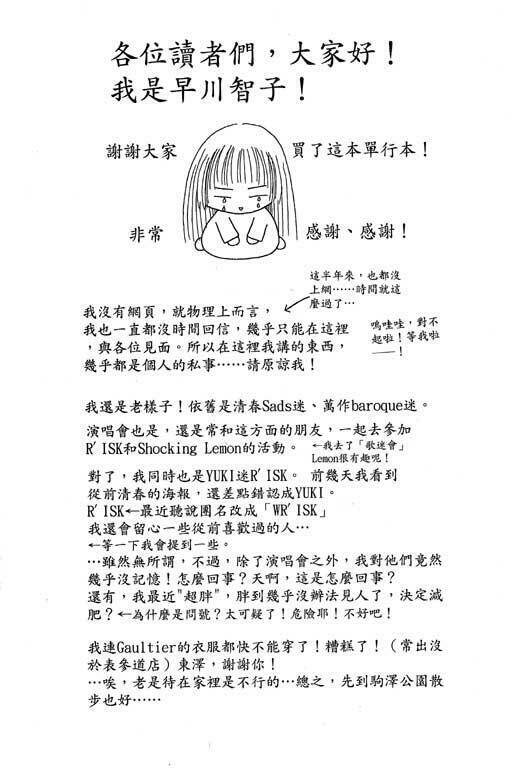 各位讀者們，大家好！
我是早川智子！
謝謝大家
買了這本單行本！
非常
感謝、感謝！
這半年來，也都沒
上網……時間就這
麼過了…
我沒有網頁，就物理上而言，
我也一直都沒時間回信，幾乎只能在這裡
，與各位見面。所以在這裡我講的東西，
幾乎都是個人的私事……請原諒我！
嗚哇哇，對不
起啦！等我啦
——！
我還是老樣子！依舊是清春Sads迷、萬作baroque迷。
演唱會也是，還是常和這方面的朋友，一起去參加
R'ISK和Shocking Lemon的活動。
←我去了「歌迷會」
Lemon很有趣呢！
對了，我同時也是YUKI迷R'ISK。 前幾天我看到
從前清春的海報，還差點錯認成YUKI。
R'ISK←最近聽說團名改成「WR'ISK」
我還會留心一些從前喜歡過的人…
←等一下我會提到一些。
…雖然無所謂，不過，除了演唱會之外，我對他們竟然
幾乎沒記憶！怎麼回事？天啊，這是怎麼回事？
還有，我最近"超胖"，胖到幾乎沒辦法見人了，決定減
肥？←為什麼是問號？太可疑了！危險耶！不好吧！
我連Gaultier的衣服都快不能穿了！糟糕了！（常出沒
於表參道店）東澤，謝謝你！
…唉，老是待在家裡是不行的…總之，先到駒澤公園散
步也好……